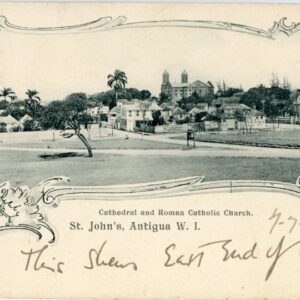 Cathedral and Roman Catholic Church.
St. John's, Antigua W. I.
This shews East End of